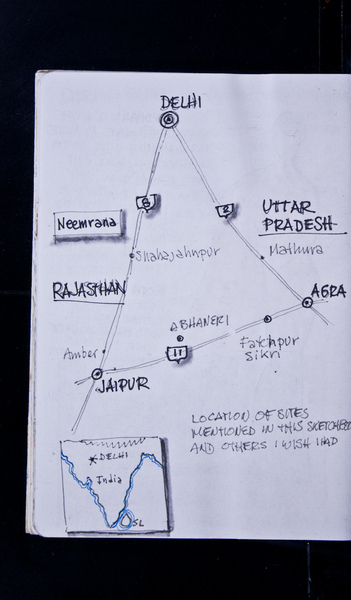 DELHI
8
2
Neemrana
UTTAR
PRADESH
Shahajahnpur
Mathura
RAJASTHAN
AGRA
ABHANERI
Fatehpur
Sikri
Amber
11
JAIPUR
LOCATION OF SITES
MENTIONED IN THIS SKETCHBOOK
AND OTHERS I WISH I HAD
DELHI
India
SL